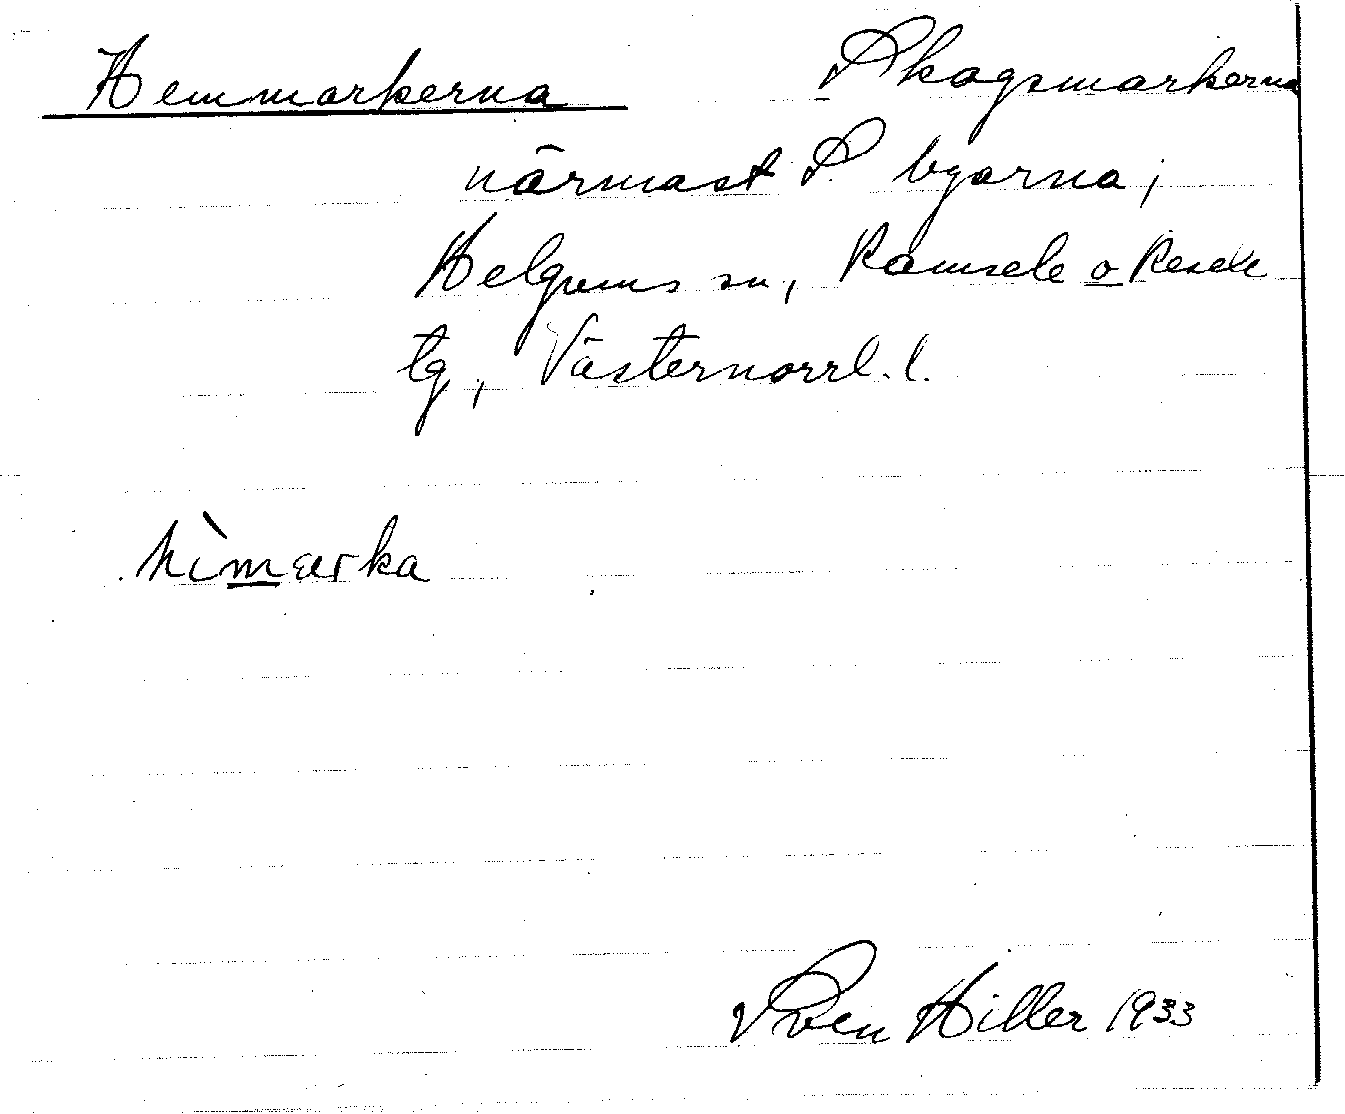 Hemmarkerna Skogsmarkerna
närmast S. byarna,
Helgums sn, Ramsele o Resele
tg, Västernorrl. l.
hìmarka
Sven Hiller 1933